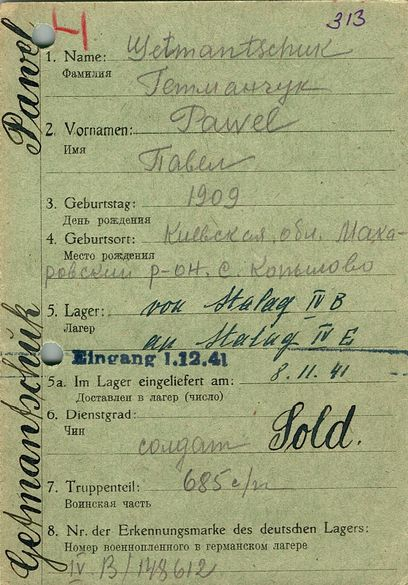 313
Ч
1. Name: Getmantschuk
Фамилия Гетманчук
2. Vornamen: Pawel
Имя
Павел
3. Geburtstag: 1909
День рождения
4. Geburtsort: Киевская обл. Мака-
Место рождения
ровский р-он. с. Копылово
5. Lager: von Stalag IV B
Лагер an Stalag IV E
Eingang 1.12.41
5a. Im Lager eingeliefert am: 8.11.41
Доставлен в лагер (число)
6. Dienstgrad: Sold.
Чин
солдат
7. Truppenteil: 685 с/п
Воинская часть
8. Nr. der Erkennungsmarke des deutschen Lagers:
Номер военнопленного в германском лагере
IV B/148612
Getmantschuk Pawel